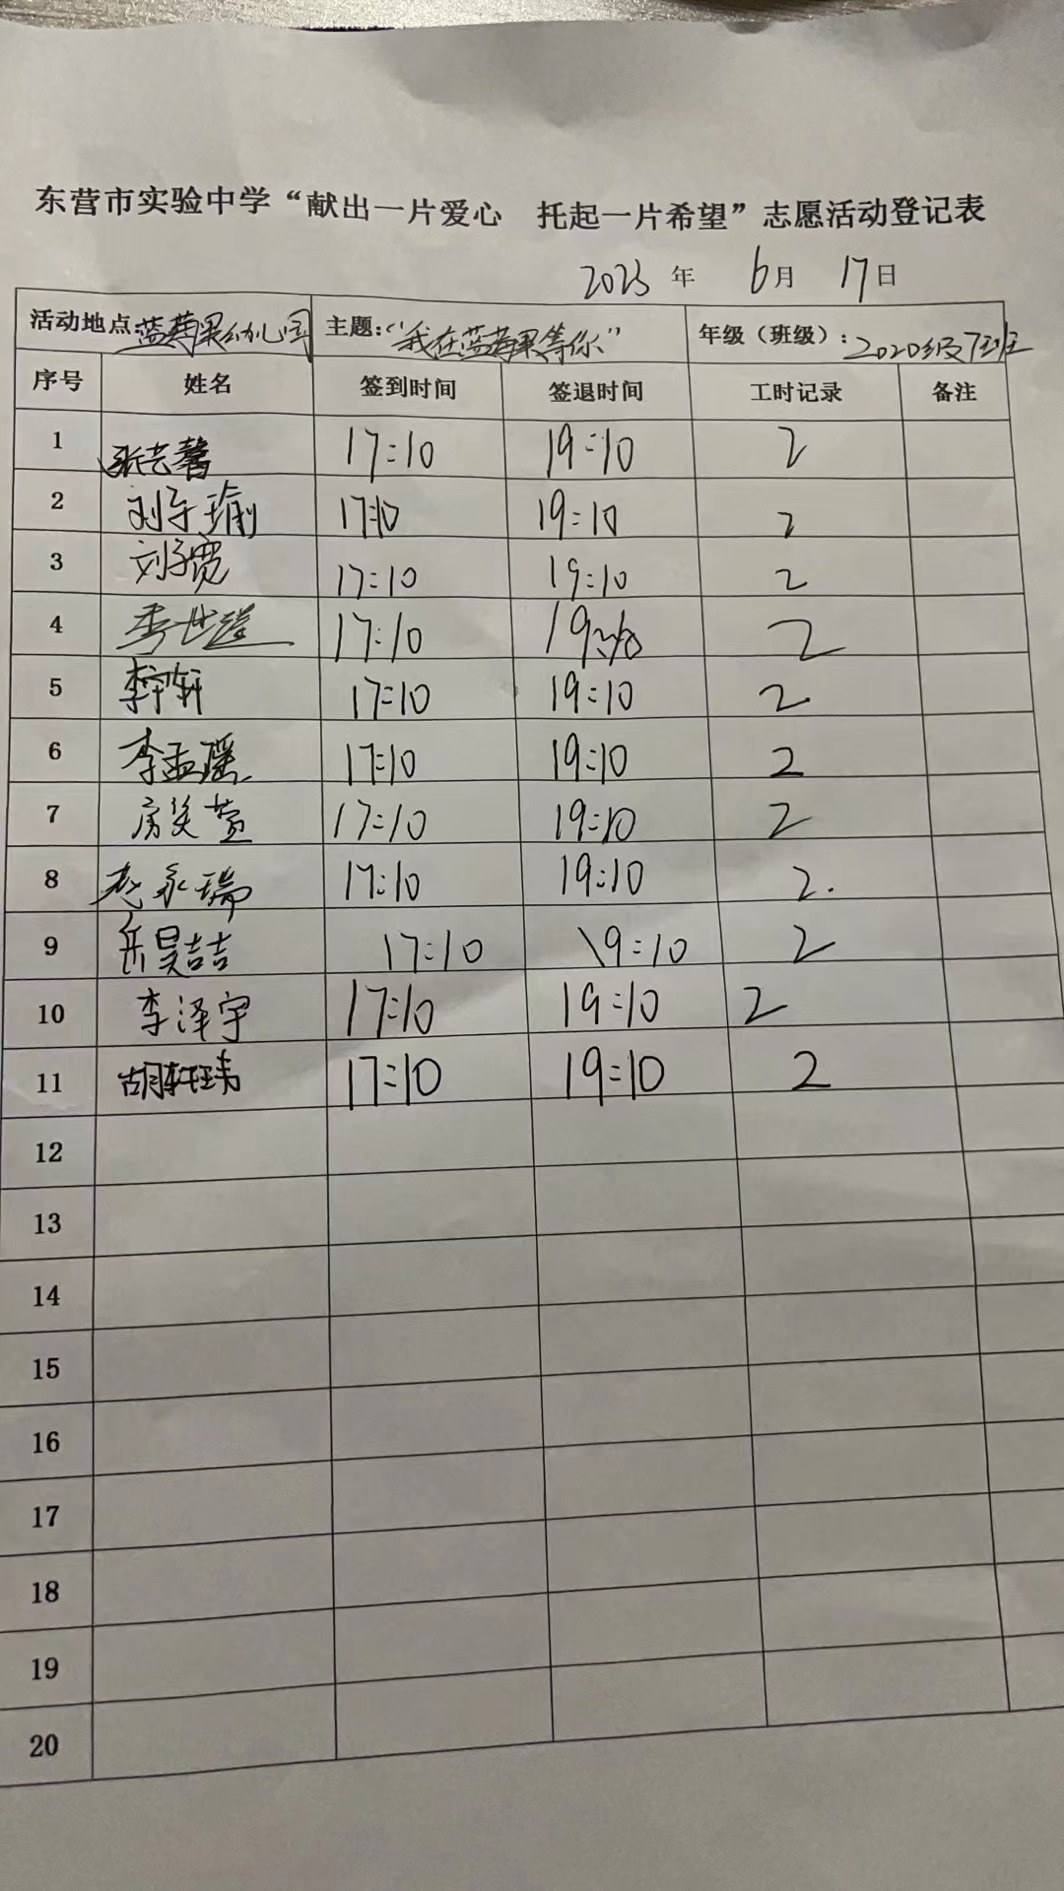 东营市实验中学“献出一片爱心 托起一片希望”志愿活动登记表
2023 年 6月 17日
活动地点:蓝莓果幼儿园 主题:“我在蓝莓果等你” 年级（班级）: 2020级7班
序号 姓名 签到时间 签退时间 工时记录 备注
1 张艺馨 17:10 19:10 2
2 刘子瑜 17:10 19:10 2
3 刘子宽 17:10 19:10 2
4 李世 17:10 19:10 2
5 李宇轩 17:10 19:10 2
6 李孟瑶 17:10 19:10 2
7 房笑萱 17:10 19:10 2
8 赵永瑞 17:10 19:10 2.
9 岳昊喆 17:10 19:10 2
10 李泽宇 17:10 19:10 2
11 胡轩玮 17:10 19:10 2
12
13
14
15
16
17
18
19
20